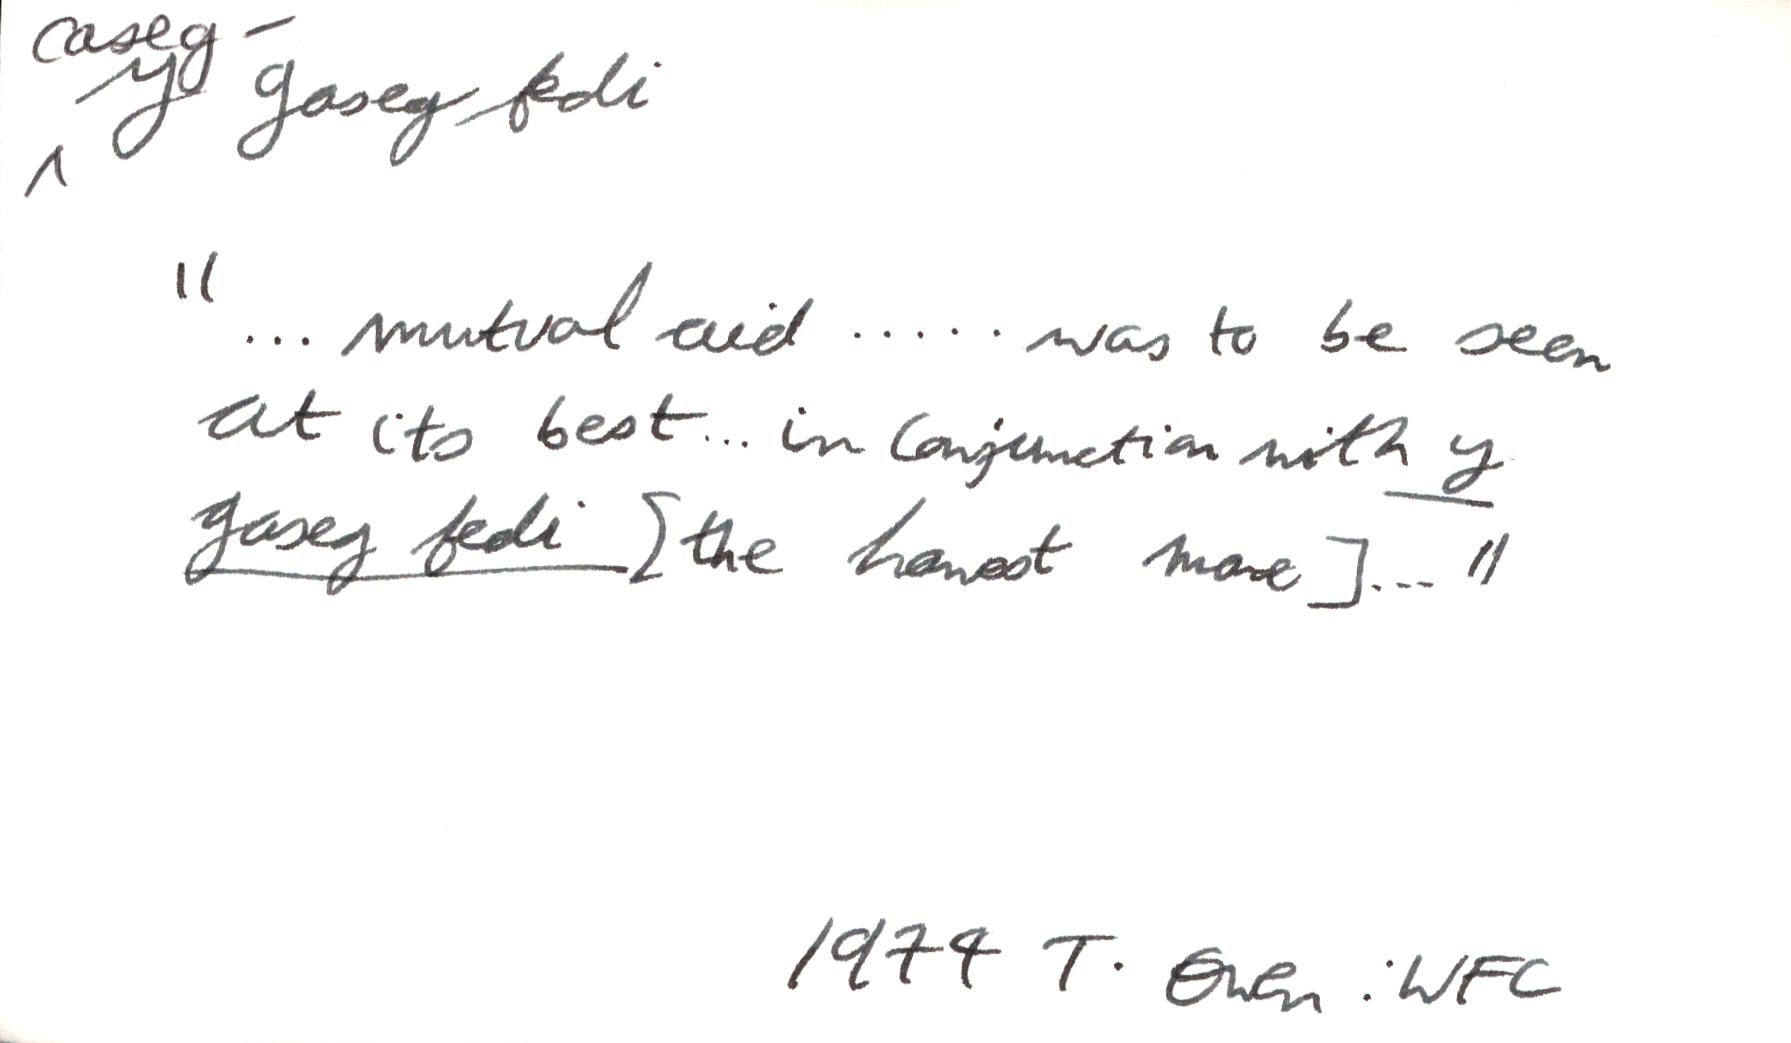 caseg -
y gaseg fedi
^
"... mutual aid ..... was to be seen
at its best... in conjunction with y
gaseg fedi [the harvest mare]..."
1974 T. Owen : WFC